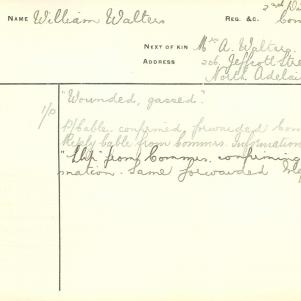 2nd Di
NAME William Walters REG. &C. Con
NEXT OF KIN Mrs A. Walters.
ADDRESS 206, Jeffcott Stre
North Adelai
"Wounded, gassed".
1/0
P/Cable. confirmed, forwarded Com
Reply cable from Commrs. Information
from Commrs. confirming
mation. Same forwarded